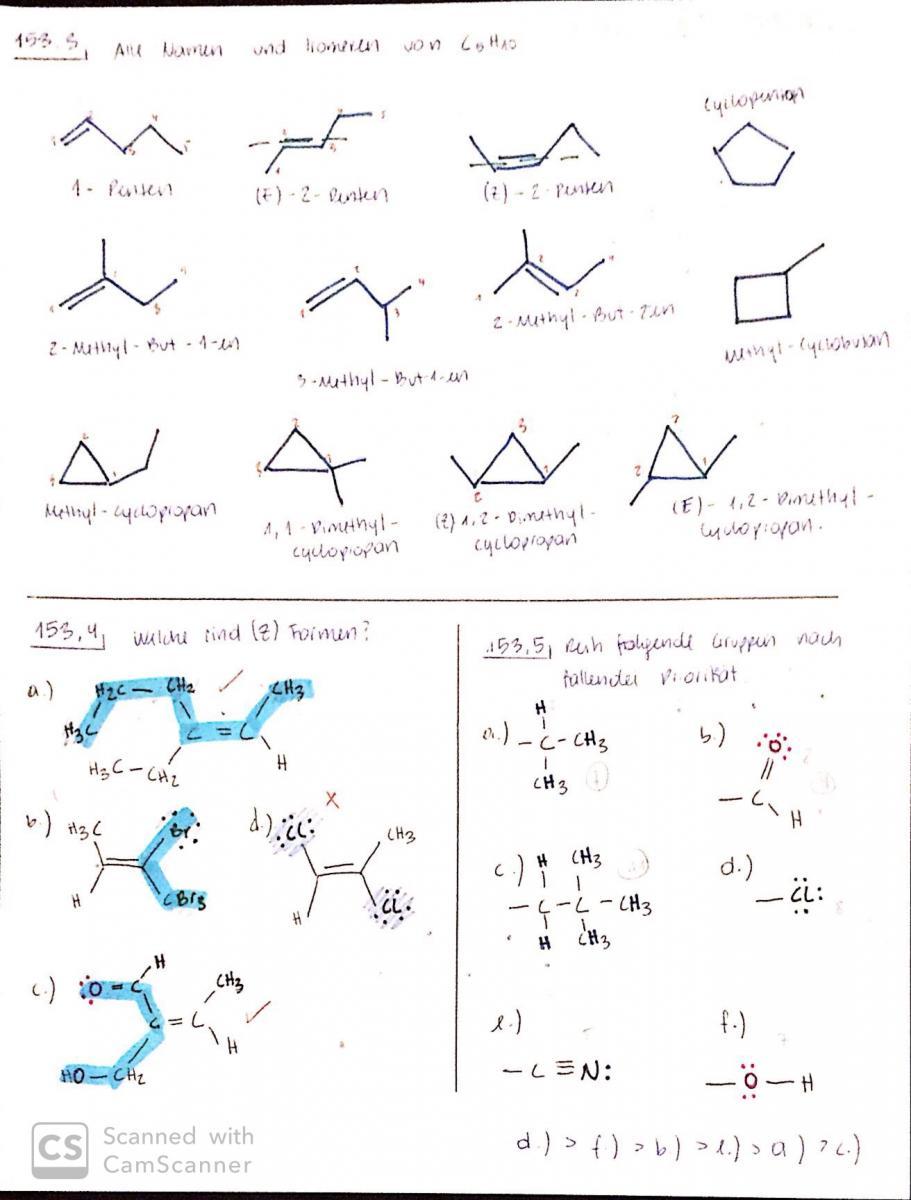 153.3, Alle Namen und Isomeren von C5H10
1 - Penten
(E) - 2 - Penten
(Z) - 2 - Penten
Cyclopentan
2-Methyl-But-1-en
3-Methyl-But-1-en
2-Methyl-But-2en
Methyl-Cyclobutan
Methyl-cyclopropan
1,1-Dimethyl-
cyclopropan
(Z) 1,2-Dimethyl-
cyclopropan
(E) - 1,2-Dimethyl-
cyclopropan.
153,4, welche sind (Z) Formen?
a.) H2C — CH2 ✓ CH3
H3C C = C
H3C — CH2 H
b.) H3C Br
H CBr3
d.) Cl X CH3
H Cl
c.) O = C H CH3
C = C ✓
HO — CH2 H
153,5, Reih folgende Gruppen nach
fallender Priorität.
a.) H
— C — CH3
CH3
b.) O
— C
H
c.) H CH3
— C — C — CH3
H CH3
d.)
— Cl:
e.)
— C ≡ N:
f.)
— O — H
d.) > f.) > b) > e.) > a) > c.)
CS Scanned with
CamScanner